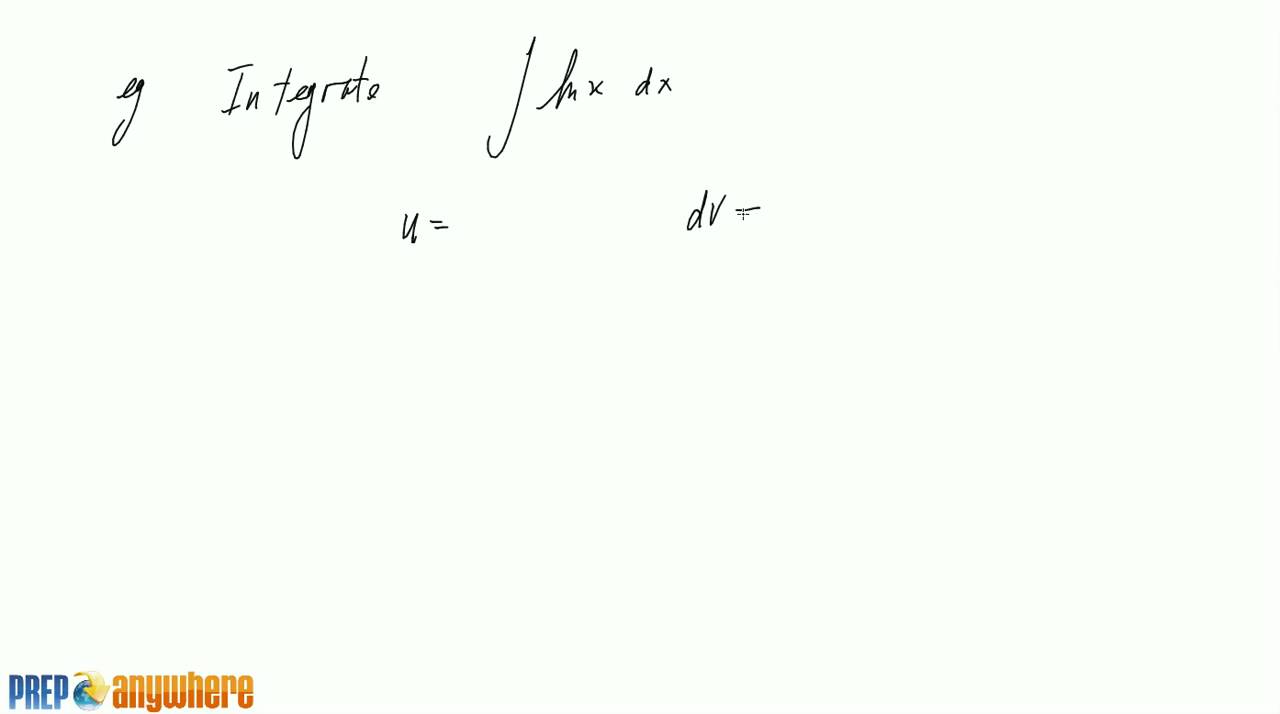 eg Integrate ∫ ln x dx
u = dv =
PREP anywhere